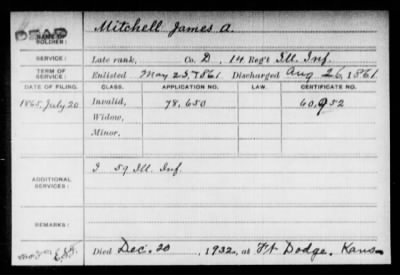 DEAD
NAME OF SOLDIER: Mitchell James A.
SERVICE: Late rank, Co. D, 14 Reg't Ill. Inf.
TERM OF SERVICE: Enlisted May 25, 1861 Discharged Aug 26, 1861
DATE OF FILING. CLASS. APPLICATION NO. LAW. CERTIFICATE NO.
1865, July 20 Invalid, 78,650 60,952
Widow,
Minor.
ADDITIONAL SERVICES: I 59 Ill. Inf.
REMARKS:
Died Dec. 20, 1932, at Ft Dodge, Kans